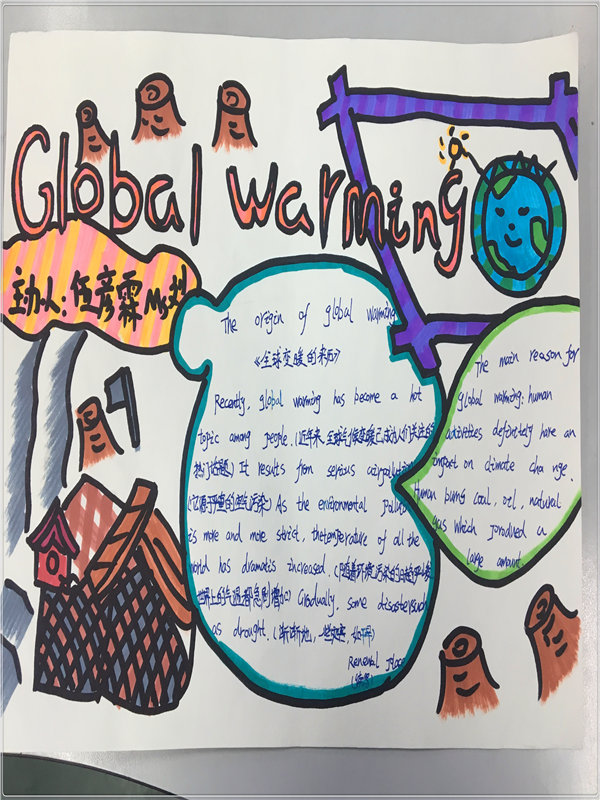 Global warming
主办人:伍彦霖 Ms刘
The origin of global warming
《全球变暖的来历》
Recently, global warming has become a hot
topic among people. (近年来,全球气候变暖已成为人们关注的
热门话题) It results from serious airpollution
(它源于严重的空气污染) As the environmental pollution
is more and more strict, thetemperature of all the
world has dramatic increased. (随着环境污染的日趋严峻
世界上的气温都急剧增加) Gradually, some disastersuch
as drought. (渐渐地,一些灾难,如
Renewal place
The main reason for
global warming: human
activities definitely have an
impact on climate cha nge.
Human burns coal, oil, natural
gas which produed a
large amount.